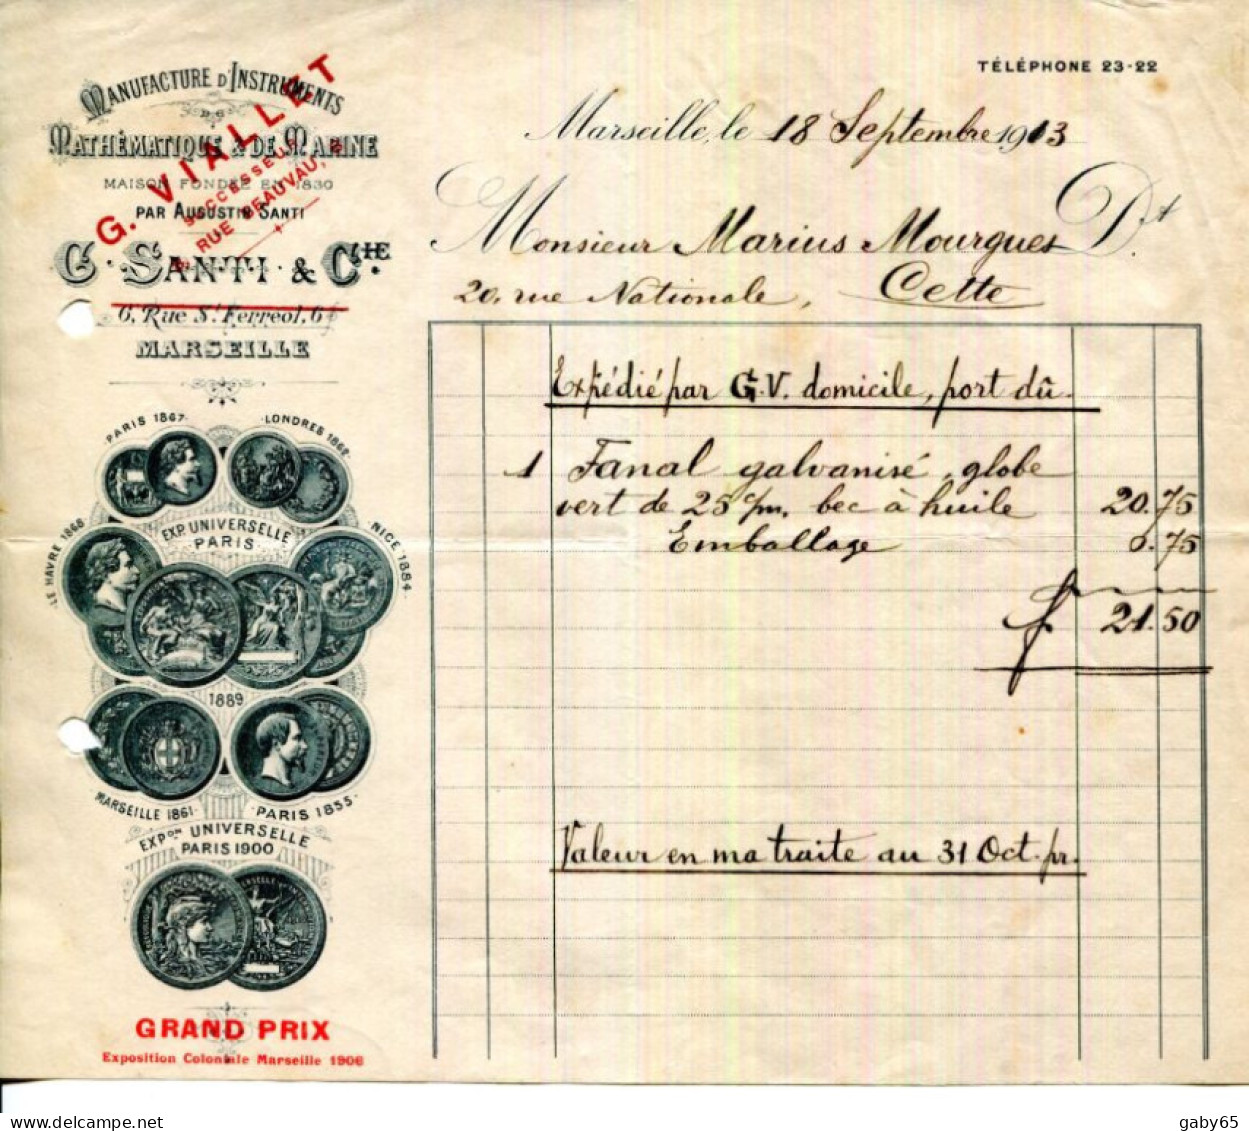 TÉLÉPHONE 23-22
MANUFACTURE D'INSTRUMENTS
DE
MATHÉMATIQUE & DE MARINE
MAISON FONDÉE EN 1830
PAR AUGUSTIN SANTI
G. SANTI & CIE.
6, Rue St Ferreol, 6
MARSEILLE
G. VIALLET
SUCCESSEUR
RUE BEAUVAU,
Marseille, le 18 Septembre 1913
Monsieur Marius Mourgues Dt.
20, rue Nationale, Cette
Expédié par G.V. domicile, port dû.
1 Fanal galvanisé, globe
vert de 25 c/m, bec à huile 20.75
Emballage 0.75
f. 21.50
Valeur en ma traite au 31 Oct. pr.
PARIS 1867
LONDRES 1862
EXP. UNIVERSELLE
PARIS
LE HAVRE 1868
NICE 1884
1889
MARSEILLE 1861
PARIS 1855
EXPon UNIVERSELLE
PARIS 1900
GRAND PRIX
Exposition Coloniale Marseille 1906
gaby65